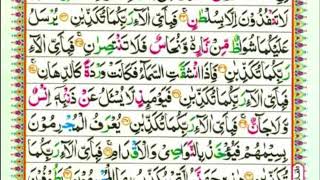 لَا تَنْفُذُوْنَ اِلَّا بِسُلْطٰنٍ ۚ فَبِاَيِّ اٰلَآءِ رَبِّكُمَا تُكَذِّبٰنِ يُرْسَلُ
عَلَيْكُمَا شُوَاظٌ مِّنْ نَّارٍ وَّنُحَاسٌ فَلَا تَنْتَصِرٰنِ ۚ فَبِاَيِّ اٰلَآءِ
رَبِّكُمَا تُكَذِّبٰنِ فَاِذَا انْشَقَّتِ السَّمَآءُ فَكَانَتْ وَرْدَةً كَالدِّهَانِ ۚ
فَبِاَيِّ اٰلَآءِ رَبِّكُمَا تُكَذِّبٰنِ فَيَوْمَئِذٍ لَّا يُسْـَٔلُ عَنْ ذَنْۢبِهٖٓ اِنْسٌ
وَّلَا جَآنٌّ ۚ فَبِاَيِّ اٰلَآءِ رَبِّكُمَا تُكَذِّبٰنِ يُعْرَفُ الْمُجْرِمُوْنَ
بِسِيْمٰهُمْ فَيُؤْخَذُ بِالنَّوَاصِيْ وَالْاَقْدَامِ ۚ فَبِاَيِّ اٰلَآءِ رَبِّكُمَا